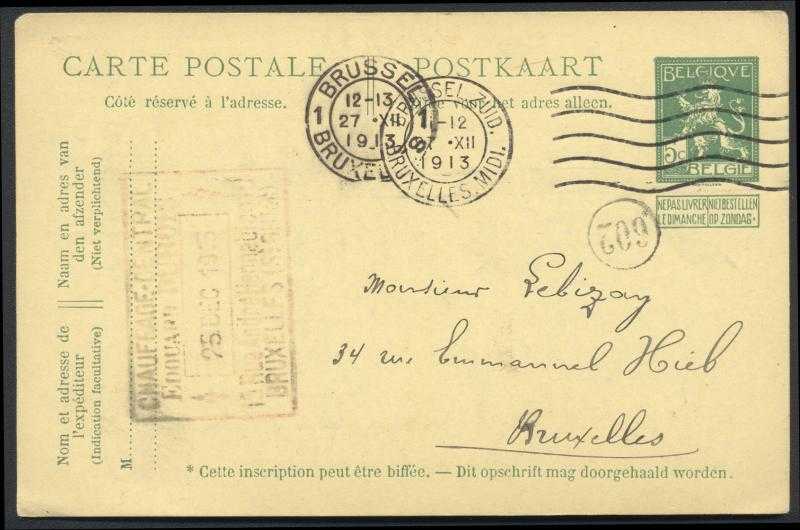 CARTE POSTALE POSTKAART
Côté réservé à l'adresse. het adres alleen.
BRUSSEL
1 12-13 1
27 ·XII
1913
BRUXEL
BRUSSEL-ZUID.
11-12
27 ·XII
1913
BRUXELLES-MIDI.
BELGIQVE
5c
BELGIË
NE PAS LIVRER LE DIMANCHE
NIET BESTELLEN OP ZONDAG.
602
Naam en adres van
den afzender
(Niet verplichtend)
Nom et adresse de
l'expéditeur
(Indication facultative)
M
CHAUFFAGE CENTRAL
EDOUARD
25 DEC 1913
BRUXELLES
Monsieur Lebizay
34 rue Emmanuel Hiel
Bruxelles
* Cette inscription peut être biffée. — Dit opschrift mag doorgehaald worden.